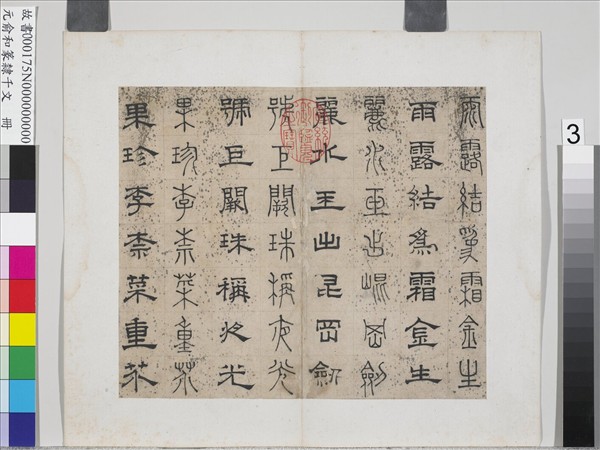 雨露結爲霜金生
雨露結爲霜金生
麗水玉出崐岡劍
麗水玉出昆岡劍
號巨闕珠稱夜光
號巨闕珠稱夜光
果珍李柰菜重芥
果珍李柰菜重芥
故書000175N000000000
元俞和篆隸千文 冊
3